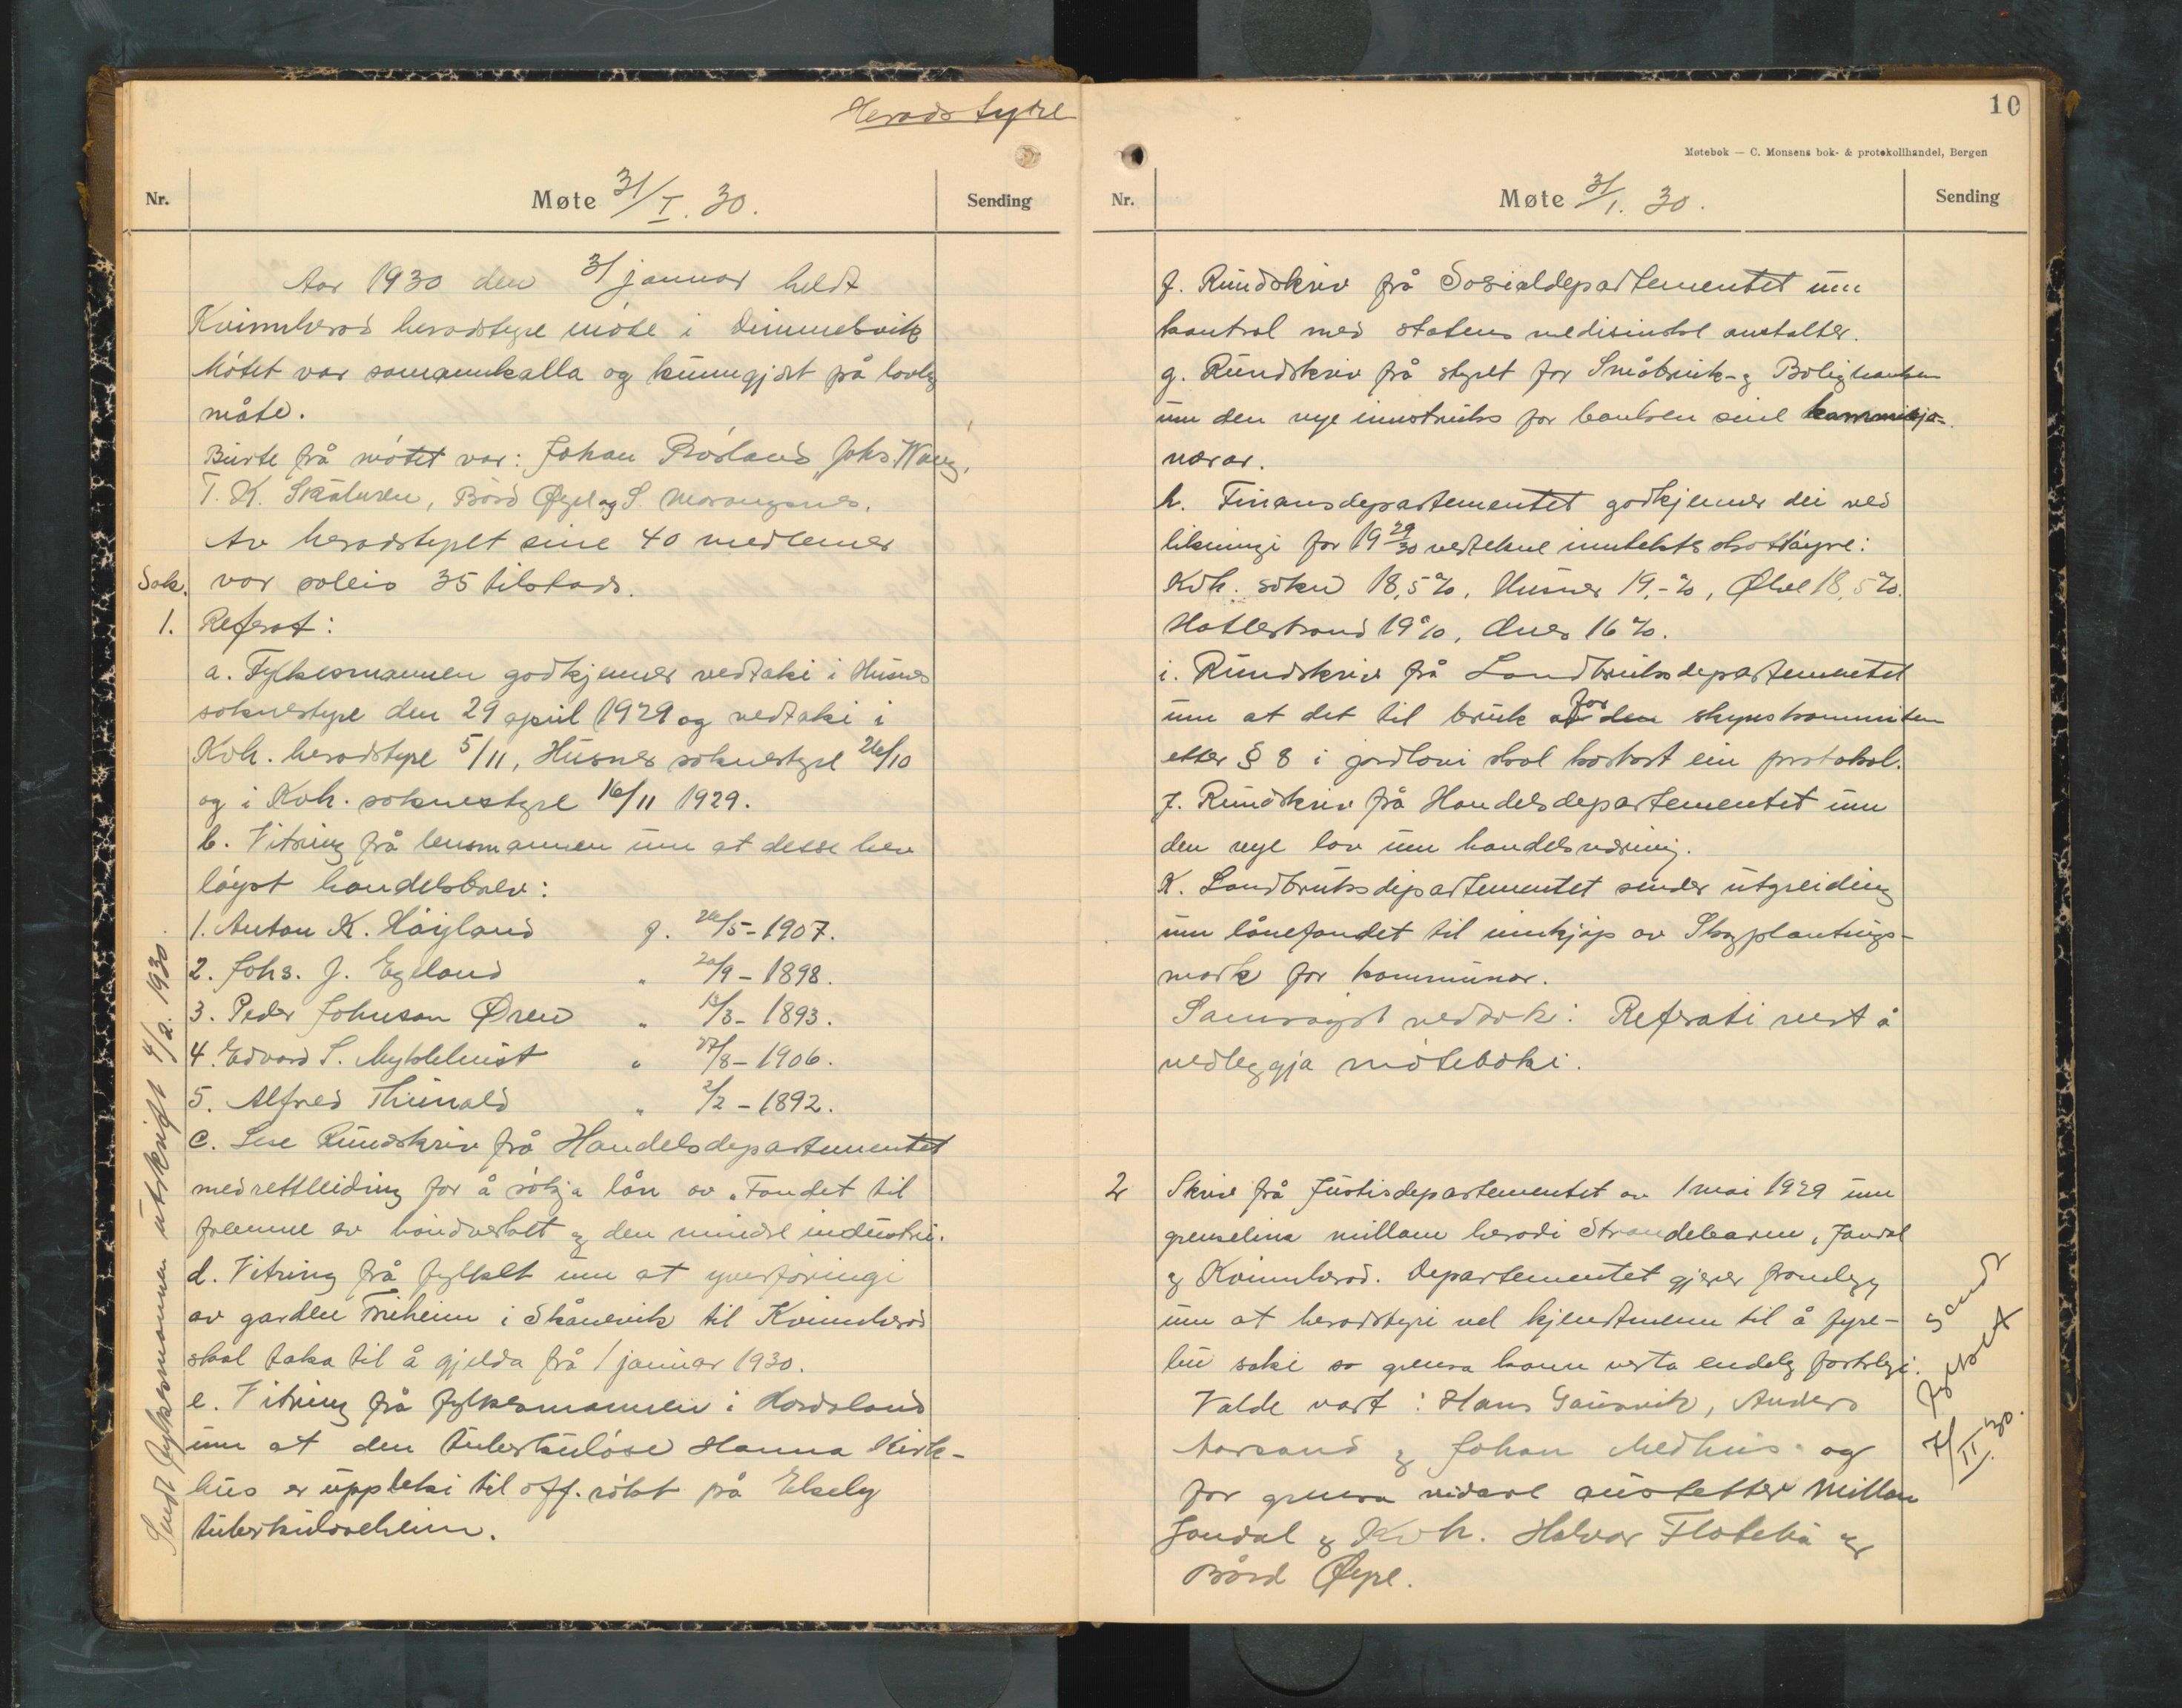 Heradstyre
Nr.
Møte 31/I. 30.
Sending
Aar 1930 den 31 januar heldt
Kvinnherad heradstyre møte i Dimmelsvik
Møtet var samannkalla og kunngjort på lovleg
måte.
Burte frå møtet var: Johan Røsland, Johs Waag,
T. K. Skåluren, Bård Øyre og S. Marangsnes.
Av heradstyret sine 40 medlemer
Sak. var soleis 35 tilstads.
1. Referat:
a. Fylkesmannen godkjenner vedtaki i Husnes
soknestyre den 29 april 1929 og vedtaki i
Kvh. heradstyre 5/11, Husnes soknestyre 26/10
og i Kvh. soknestyre 16/11 1929.
b. Vitring frå lensmannen um at desse hev
løyst handelsbrev:
1. Anton K. Høyland f. 26/5-1907.
2. Johs. J. Egeland " 20/9-1898.
3. Peder Johnson Øren " 13/3-1893.
4. Edvard S. Myklebust " 27/8-1906.
5. Alfred Thunald " 2/2-1892.
c. Lese Rundskriv frå Handelsdepartementet
med rettleiding for å søkja lån av "Fondet til
fremme av håndverket og den mindre industri.
d. Vitring frå fylket um at yverføringi
av garden Friheim i Skånevik til Kvinnherad
skal taka til å gjelda frå 1 januar 1930.
e. Vitring frå fylkesmannen i Hordaland
um at den tuberkuløse Hanna Kirk-
hus er uppteki til off. røkt på Ekely
tuberkuloseheim.
Sendt fylkesmannen utskrift 4/2. 1930.
10
Møtebok — C. Monsens bok- & protokollhandel, Bergen
Nr.
Møte 31/1. 30.
Sending
f. Rundskriv frå Sosialdepartementet um
kontrol med statens medisinske anstalter.
g. Rundskriv frå styret for Småbruk- og Boligbanken
um den nye instruks for banken sine kommisjo-
nærar.
h. Finansdepartementet godkjenner dei ved
likningi for 1929/30 vedtekne inntektsskattøyre:
Kvh. sokn 18,5%, Husnes 19,-%, Ølve 18,5%.
Hatlestrand 19%, Ænes 16%.
i. Rundskriv frå Landbruksdepartementet
um at det til bruk for den skynskommisjon
etter § 8 i jordlovi skal kostast ein protokol.
j. Rundskriv frå Handelsdepartementet um
den nye lov um handelsnæring.
K. Landbruksdepartementet sender utgreiding
um lånefondet til innkjøp av Skogplantings-
mark for kommunar.
Samrøystt vedtok: Referati vert å
vedleggja møteboki.
2 Skriv frå Justisdepartementet av 1 mai 1929 um
grenselina millom heradi Strandebarm, Jondal
og Kvinnherad. Departementet gjerer framlegg
um at heradstyri vel kjendtmenn til å fyre-
bu saki so grensa kann verta endeleg fastslegi.
Valde vart: Hans Gausvik, Anders
Aarsand og Johan Medhus og
for grensa vidare austetter millom
Jondal og Kvh. Halvor Flatebø og
Bård Øyre.
Sendt
fylket
7/II. 30.